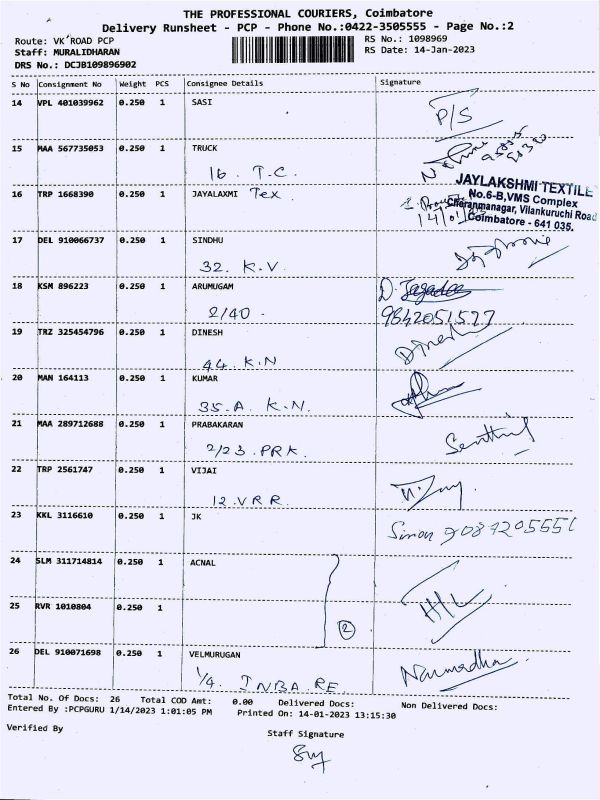 THE PROFESSIONAL COURIERS, Coimbatore
Delivery Runsheet - PCP - Phone No.:0422-3505555 - Page No.:2
Route: VK ROAD PCP
RS No.: 1098969
Staff: MURALIDHARAN
RS Date: 14-Jan-2023
DRS No.: DCJB109896902
S No Consignment No Weight PCS Consignee Details Signature
14 VPL 401039962 0.250 1 SASI
P/S
15 MAA 567735053 0.250 1 TRUCK
16. T.C.
16 TRP 1668390 0.250 1 JAYALAXMI Tex
JAYLAKSHMI TEXTILE
No.6-B,VMS Complex
Cheranmanagar, Vilankuruchi Road
Coimbatore - 641 035.
17 DEL 910066737 0.250 1 SINDHU
32. K.V.
18 KSM 896223 0.250 1 ARUMUGAM
D. Jagadee
2/40 -
9842051527
19 TRZ 325454796 0.250 1 DINESH
Dinesh
44. K.N
20 MAN 164113 0.250 1 KUMAR
35-A. K.N.
21 MAA 289712688 0.250 1 PRABAKARAN
2/23.PRK.
Senthil
22 TRP 2561747 0.250 1 VIJAI
12.VRR.
23 KKL 3116610 0.250 1 JK
Simon
24 SLM 311714814 0.250 1 ACNAL
25 RVR 1010804 0.250 1
2
26 DEL 910071698 0.250 1 VELMURUGAN
1/4. INBA.RE.
Narmadha
Total No. Of Docs: 26 Total COD Amt: 0.00 Delivered Docs: Non Delivered Docs:
Entered By :PCPGURU 1/14/2023 1:01:05 PM Printed On: 14-01-2023 13:15:30
Verified By
Staff Signature